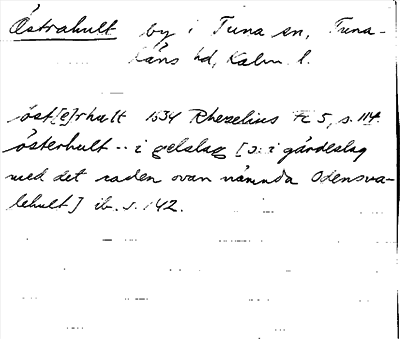 Östrahult by i Tuna sn, Tuna-
läns hd, Kalm. l.
öst[e]rhult 1634 Rhezelius Fc 5, s. 114.
österhult -- i gelslag [ɔ: i gärdeslag
med det raden ovan nämnda Odensva-
lehult] ib. s. 142.